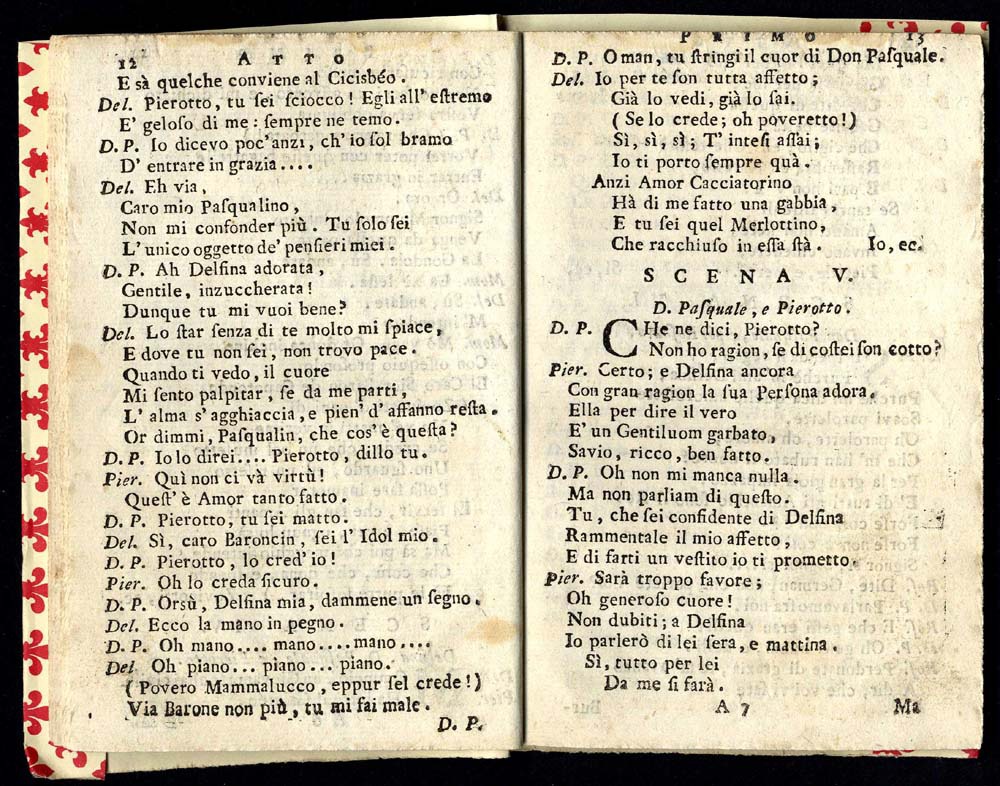 12 ATTO
E sà quelche conviene al Cicisbéo.
Del. Pierotto, tu ſei ſciocco! Egli all' eſtremo
E' geloſo di me: ſempre ne temo.
D. P. Io dicevo poc'anzi, ch'io ſol bramo
D' entrare in grazia....
Del. Eh via,
Caro mio Paſqualino,
Non mi confonder più. Tu ſolo ſei
L' unico oggetto de' penſieri miei.
D. P. Ah Delfina adorata,
Gentile, inzuccherata!
Dunque tu mi vuoi bene?
Del. Lo ſtar ſenza di te molto mi ſpiace,
E dove tu non ſei, non trovo pace.
Quando ti vedo, il cuore
Mi ſento palpitar, ſe da me parti,
L' alma s' agghiaccia, e pien' d' affanno reſta.
Or dimmi, Paſqualin, che cos' è queſta?
D. P. Io lo direi.... Pierotto, dillo tu.
Pier. Quì non ci và virtù!
Queſt' è Amor tanto fatto.
D. P. Pierotto, tu ſei matto.
Del. Sì, caro Baroncin, ſei l' Idol mio.
D. P. Pierotto, lo cred' io!
Pier. Oh lo creda ſicuro.
D. P. Orsù, Delfina mia, dammene un ſegno.
Del. Ecco la mano in pegno.
D. P. Oh mano.... mano....mano....
Del. Oh piano... piano... piano.
(Povero Mammalucco, eppur ſel crede!)
Via Barone non più, tu mi fai male.
D. P.
PRIMO 13
D. P. O man, tu ſtringi il cuor di Don Paſquale.
Del. Io per te ſon tutta affetto;
Già lo vedi, già lo ſai.
(Se lo crede; oh poveretto!)
Sì, sì, sì; T' inteſi aſſai;
Io ti porto ſempre quà.
Anzi Amor Cacciatorino
Hà di me fatto una gabbia,
E tu ſei quel Merlottino,
Che racchiuſo in eſſa ſtà. Io, ec.
SCENA V.
D. Paſquale, e Pierotto.
D. P. CHe ne dici, Pierotto?
Non ho ragion, ſe di coſtei ſon cotto?
Pier. Certo; e Delfina ancora
Con gran ragion la ſua Perſona adora.
Ella per dire il vero
E' un Gentiluom garbato,
Savio, ricco, ben fatto.
D. P. Oh non mi manca nulla.
Ma non parliam di queſto.
Tu, che ſei confidente di Delfina
Rammentale il mio affetto,
E di farti un veſtito io ti prometto.
Pier. Sarà troppo favore;
Oh generoſo cuore!
Non dubiti; a Delfina
Io parlerò di lei ſera, e mattina.
Sì, tutto per lei
Da me ſi farà.
A 7 Ma